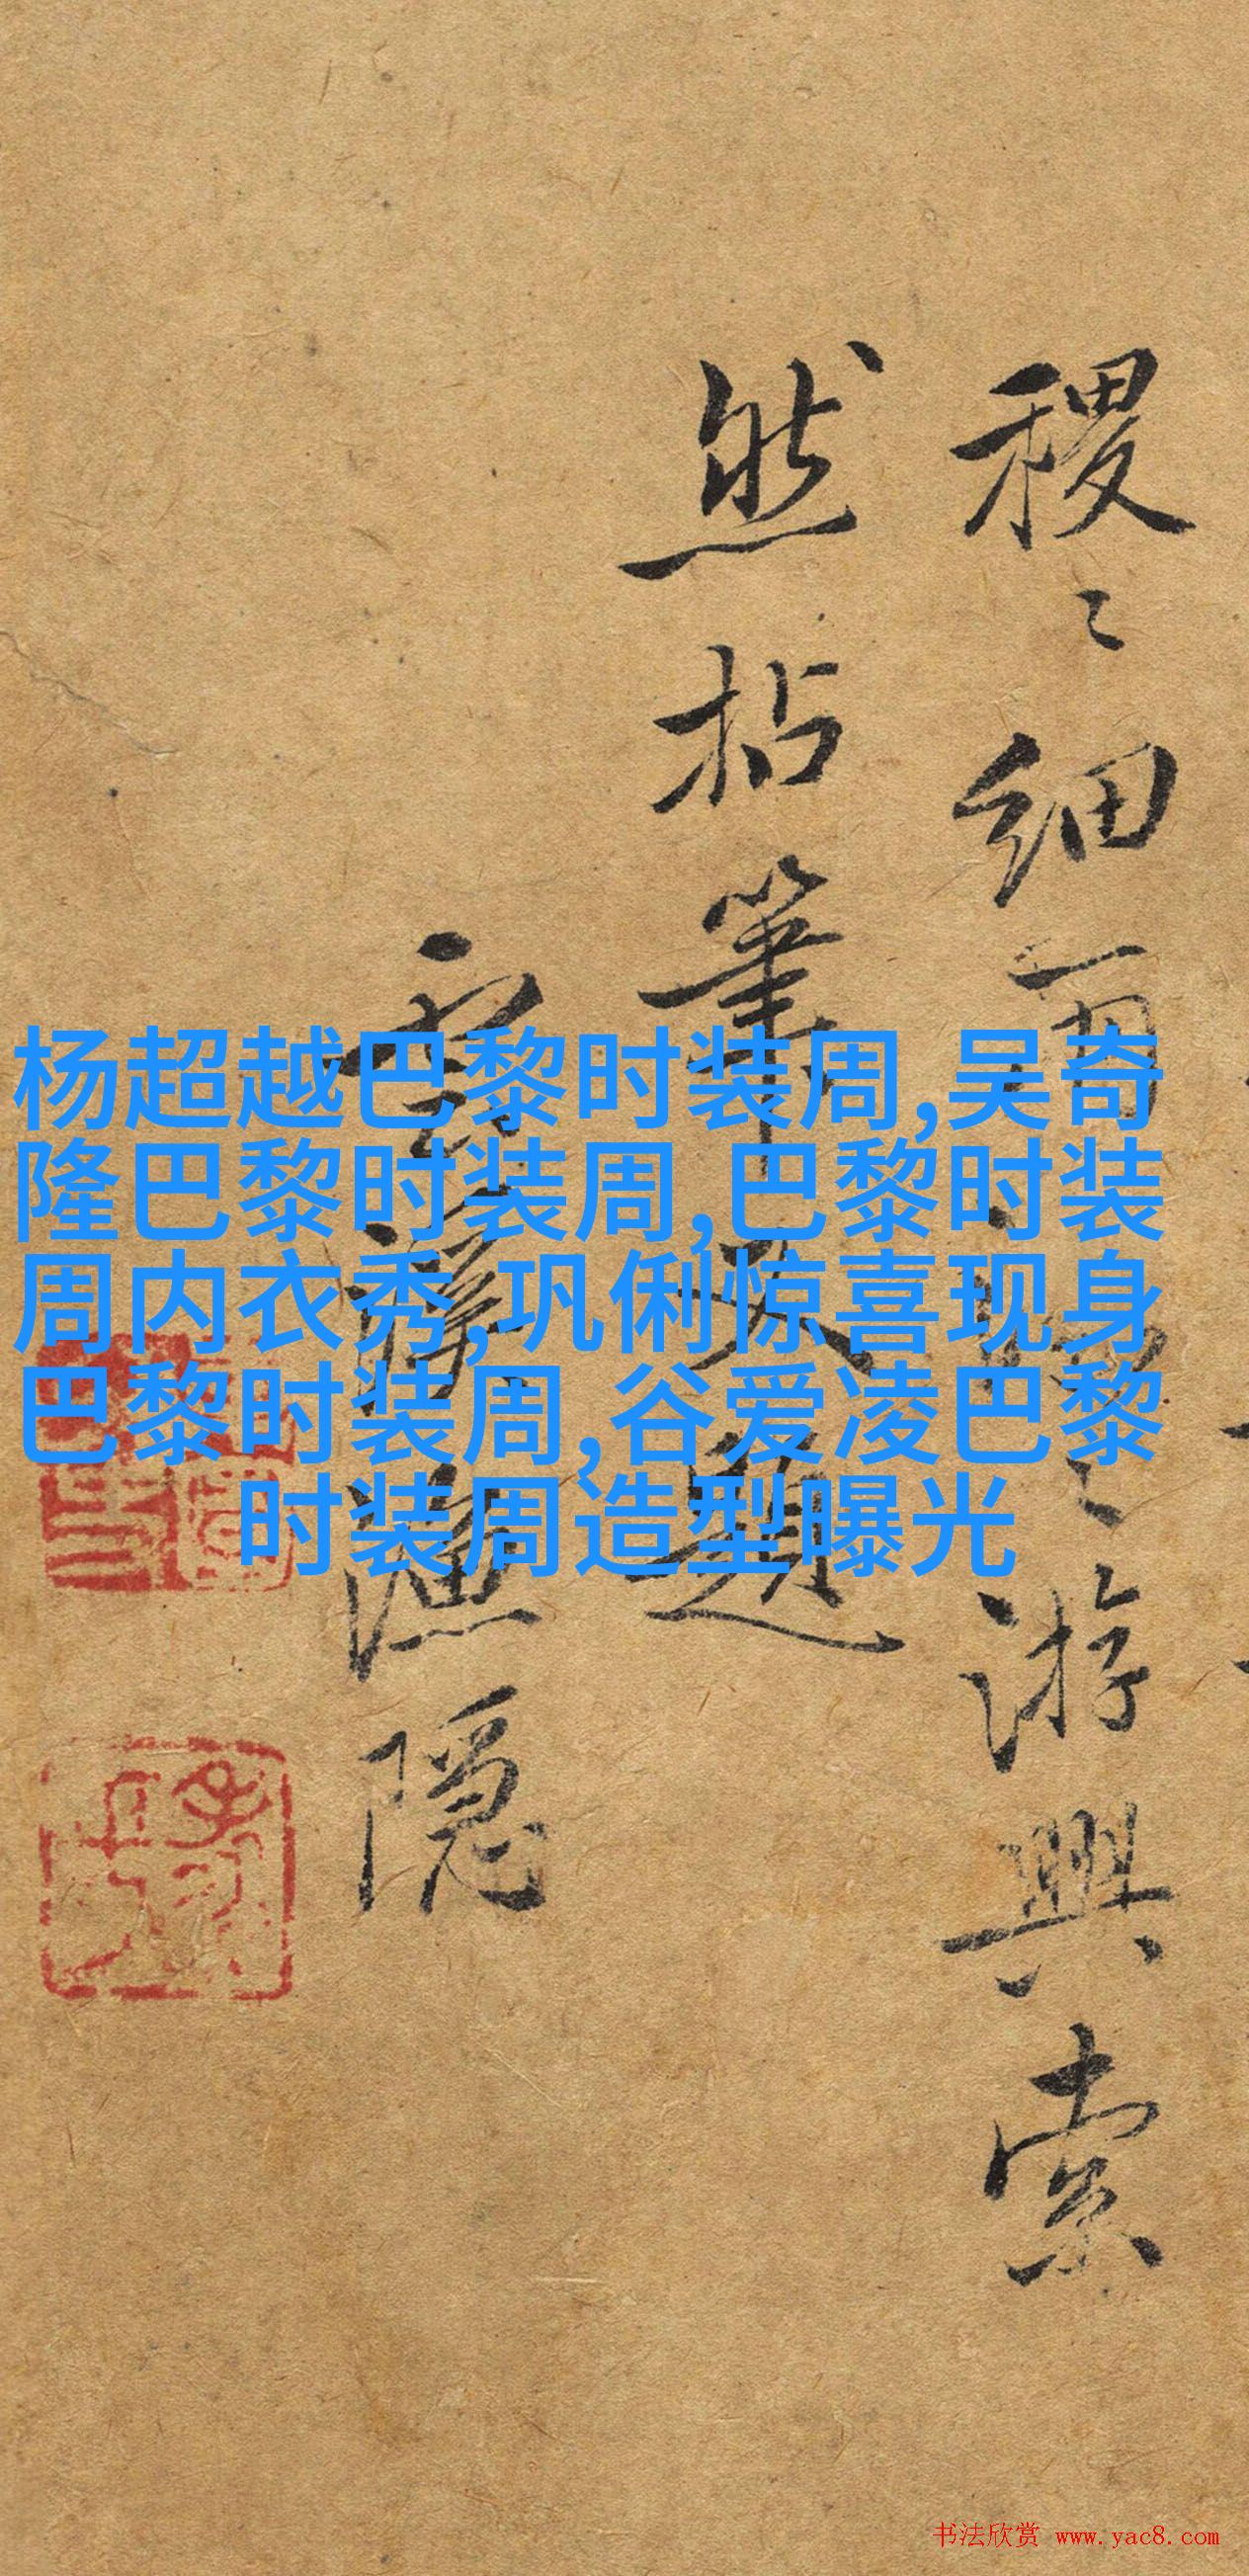 稷〻细雨
游興索
然拈筆
題
隱
杨超越巴黎时装周,吴奇
隆巴黎时装周,巴黎时装
周内衣秀,巩俐惊喜现身
巴黎时装周,谷爱凌巴黎
时装周造型曝光
书法欣赏 www.yac8.com